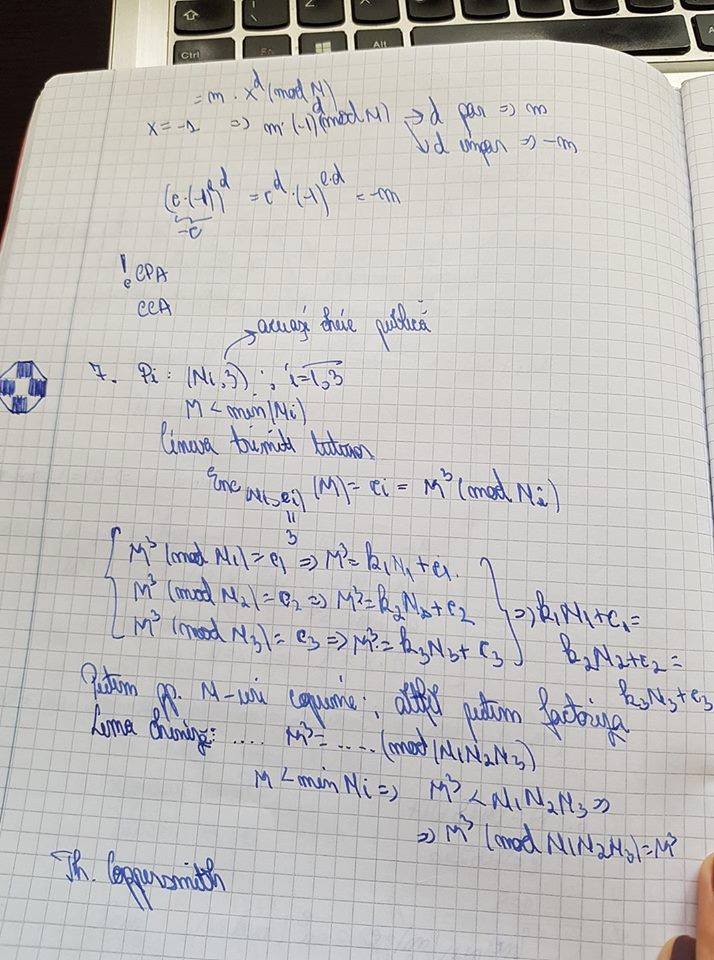 Ctrl
Fn
Alt
= m · x^d (mod N)
x = -1 => m · (-1)^d (mod N) → d par => m
↓ d impar => -m
(c·(-1)^e)^d = c^d · (-1)^{e·d} = -m
-c
! CPA
CCA
aceeași cheie publică
7. Pi : (Ni, 3) ; i = 1,3
M < min(Ni)
Cineva trimite tuturor
Enc (Ni, ei) (M) = ci = M³ (mod Ni)
=
3
M³ (mod N1) = c1 => M³ = k1N1 + c1
M³ (mod N2) = c2 => M³ = k2N2 + c2
M³ (mod N3) = c3 => M³ = k3N3 + c3
=> k1N1 + c1 =
k2N2 + c2 =
k3N3 + c3
Putem pp. N-uri coprime, altfel putem factoriza
Lema chineză: .... M³ = .... (mod N1N2N3)
M < min Ni => M³ < N1N2N3 =>
=> M³ (mod N1N2N3) = M³
Th. Coppersmith